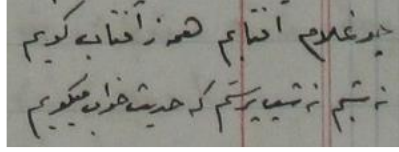 چو غلام آفتابم همه ز آفتاب گویم
نه شبم نه شب پرستم که حدیث خواب میگویم